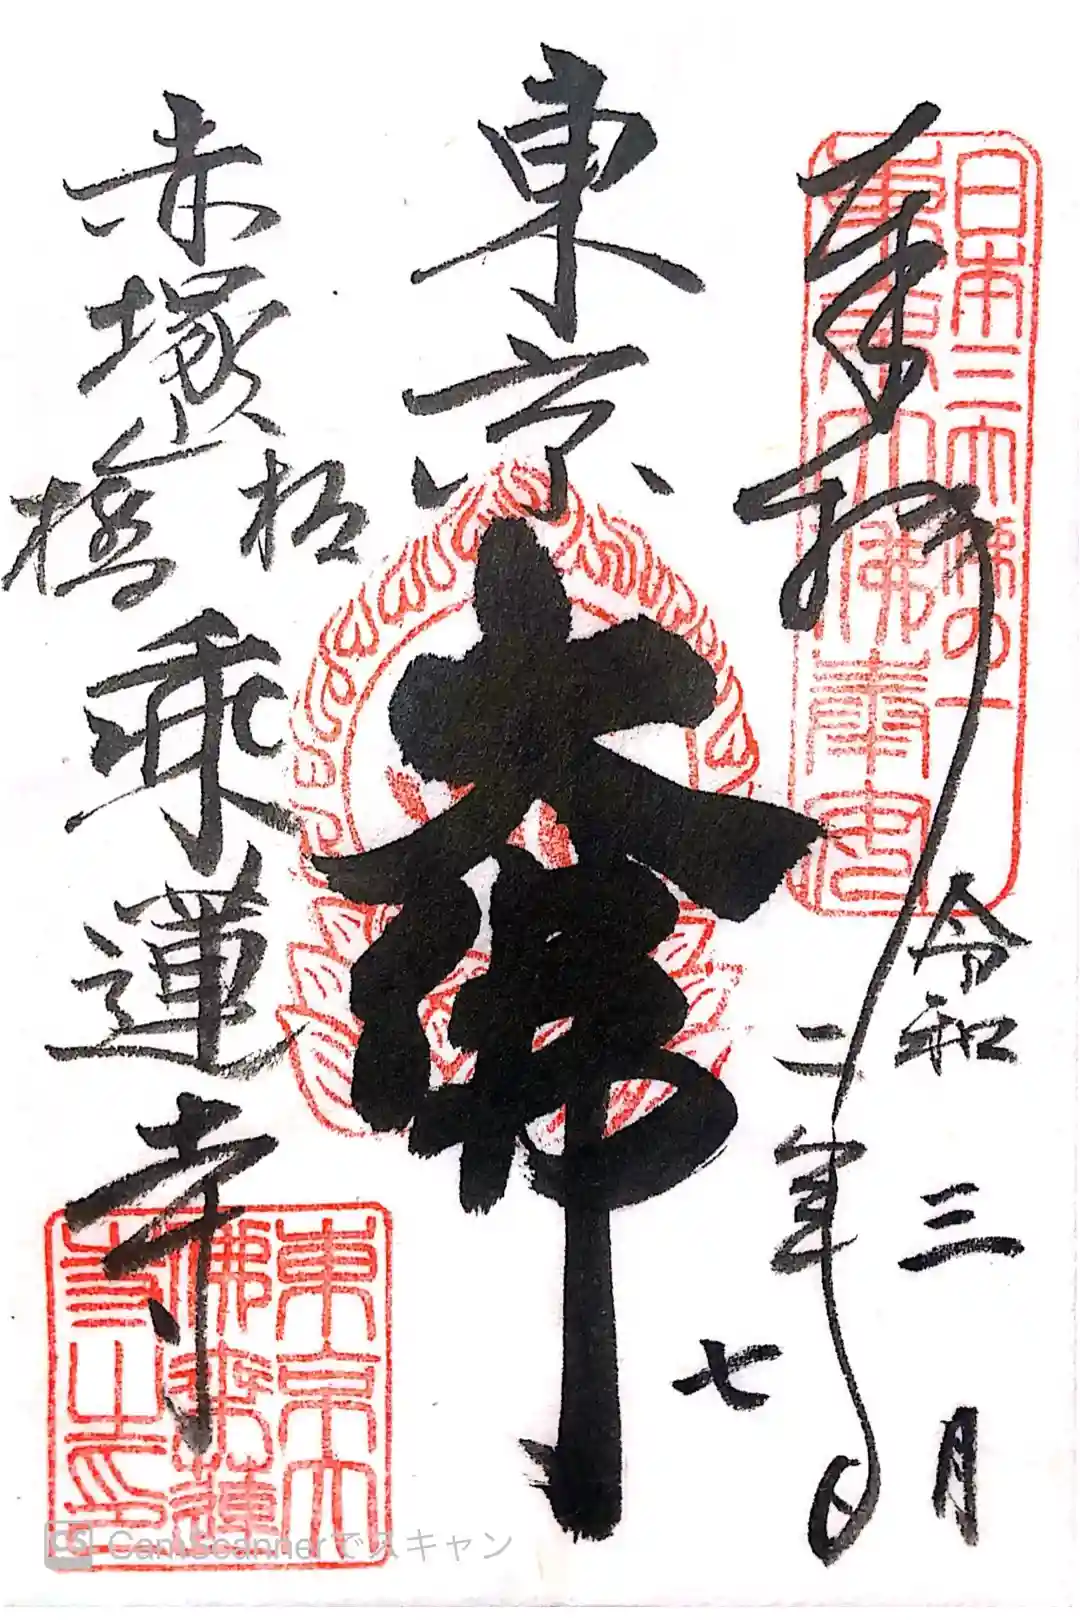 奉拝
令和
二年
三月
七日
日本三大佛の一
東京大佛奉安
東京
大佛
赤塚
松
檜
乘蓮寺
東京大
佛乘蓮
寺之印
CS CamScannerでスキャン